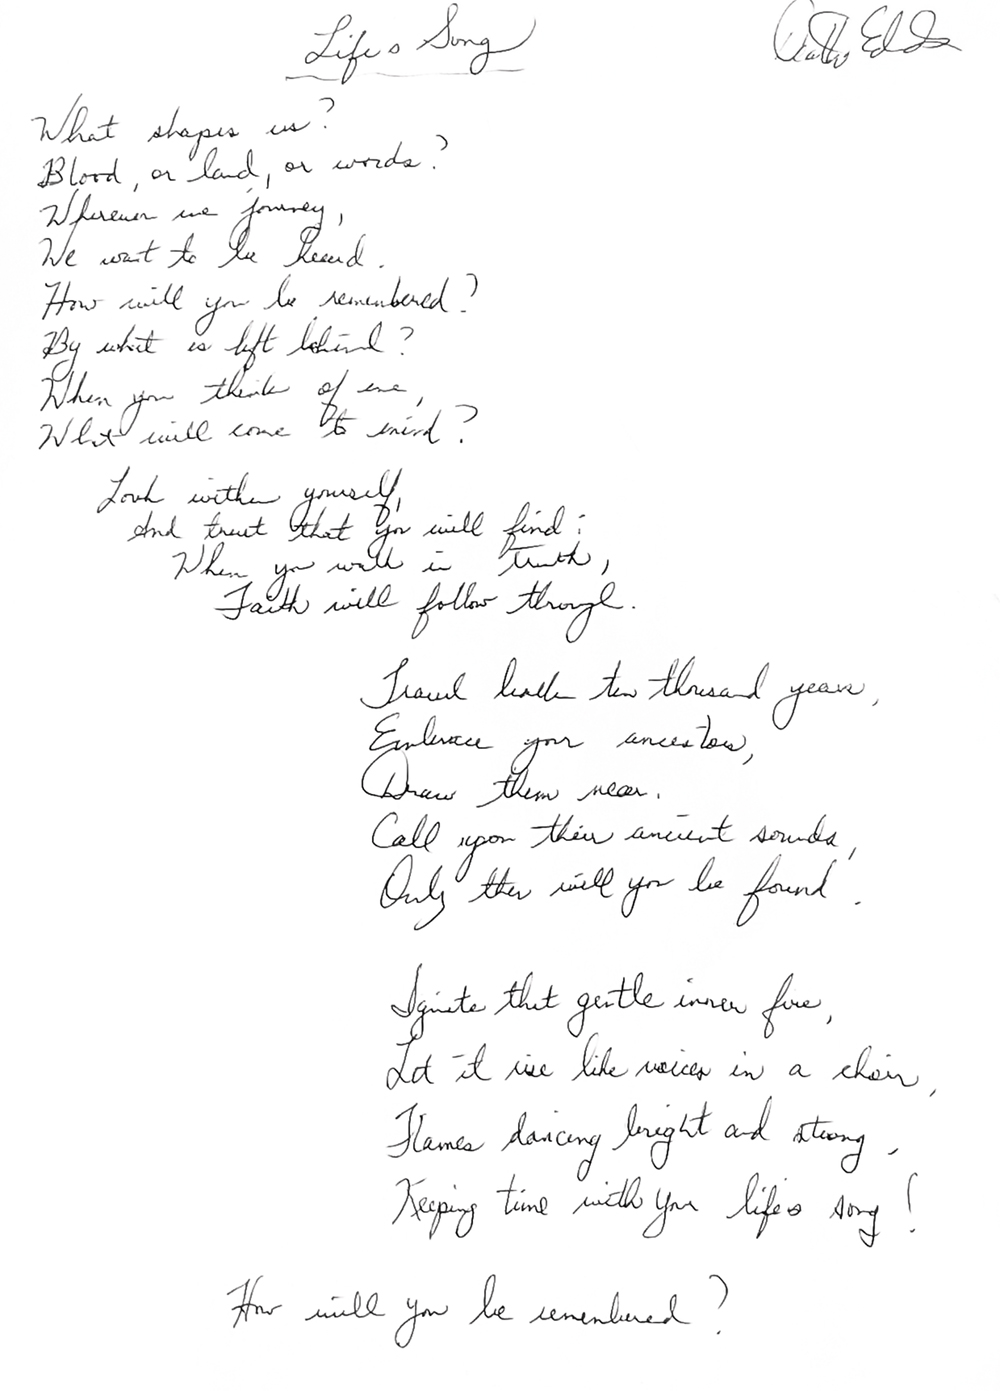 Life's Song
What shapes us?
Blood, or land, or words?
Wherever we journey,
We want to be heard.
How will you be remembered?
By what is left behind?
When you think of me,
What will come to mind?
Look within yourself,
And trust that you will find:
When you walk in truth,
Faith will follow through.
Travel back ten thousand years,
Embrace your ancestors,
Draw them near.
Call upon their ancient sounds,
Only then will you be found.
Ignite that gentle inner fire,
Let it rise like voices in a choir,
Flames dancing bright and strong,
Keeping time with your life's song!
How will you be remembered?